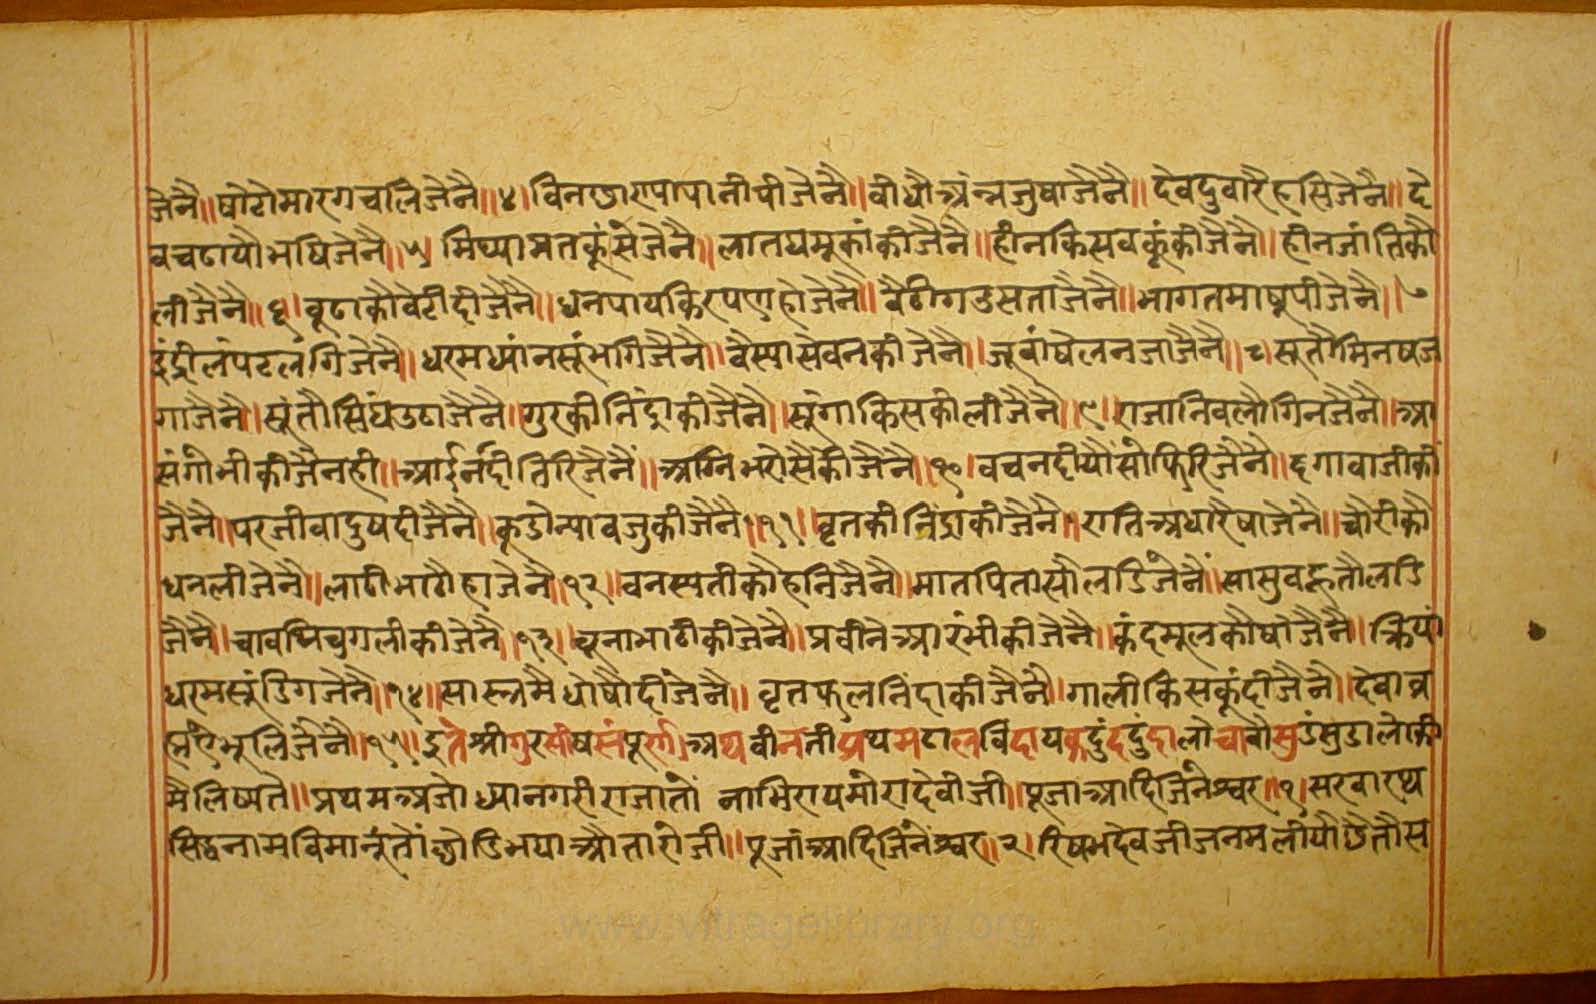 जैनै॥ षोटोमारगचलिजेनै॥४। विनछाण्यापानीपीजेनै॥ वीधौअंन्नजुषाजैनै॥ देवदुवारैहसिजेनै॥ दे
वचढायौभषिजेनै॥५। मिथ्यामतकूंसेजेनै॥ लातघमूकांकीजैनै॥ हीनकिसवकूंकीजैनै॥ हीनजांतिकौ
लीजैनै॥६। बूढाकौबेटीदीजैनै॥ धनपायकिरपणहोजेनै॥ बैठीगउसताजैनै॥ भागतमाषुपीजैनै॥७
इंद्रीलंपटलगिजेनै॥ धरमध्यांनसूंभगिजैनै॥ वैस्यासेवनकीजेनै॥ जूवांषेलनजाजैनै॥८ सूतौमिनषज
गाजैनै॥ सूंतौसिंघउठाजैनै॥ गुरकीनिंदाकीजैनै॥ सूंगाकिसकीलीजैनै॥९॥ राजानिवलौगिनजैनै॥ अा
संगौभीकीजैनही॥ आईनदीतिरिजैनैं॥ अग्निभरोसैकीजैनै॥१०। वचनदीयौंसोफिरिजैनै॥ दगावाजीकी
जैनै॥ परजीवादुषदीजैनै॥ कूडोन्यावजुकीजैनै॥११॥ वृतकीनिंद्राकीजेनै॥ रातिअथारैषाजेनै॥ चौरीकौ
धनलीजेनै॥ लाठीभाठौहाजेनै॥१२॥ वनस्पतीकौहनिजैनै॥ मातपितासौंलडिजैनै॥ सासुवहूतौलडि
जैनै॥ चावषिचुगलीकीजेनै॥१३॥ चूनाभाठीकीजेनै॥ प्रवीनेआरंभीकीजेनै॥ कंदमूलकौषोजैनै॥ क्रियां
धरमसूंडिगजेनै॥१४॥ सास्त्रमैधोषौदीजेनै॥ वृतफलनिंदाकीजैनै॥ गालीकिसकूंदीजैनै॥ देवाप्र
भूलिजेनै॥१५॥ इंतिश्रीगुरसीषसंपूर्ण॥ अथवीनतीप्रथमढाल
मैलिष्यतै॥ प्रथमअजोध्यानगरीराजातों नाभिरायमोरादेवीजी॥ पूजाआदिजिनेश्वर॥१। सरवारथ
सिद्धनामविमानूंतोंछोडिभयाऔतारोजी॥ पूजांआदिजिनेश्वर॥२। रिषभदेवजीजनमलीयौछैतौस